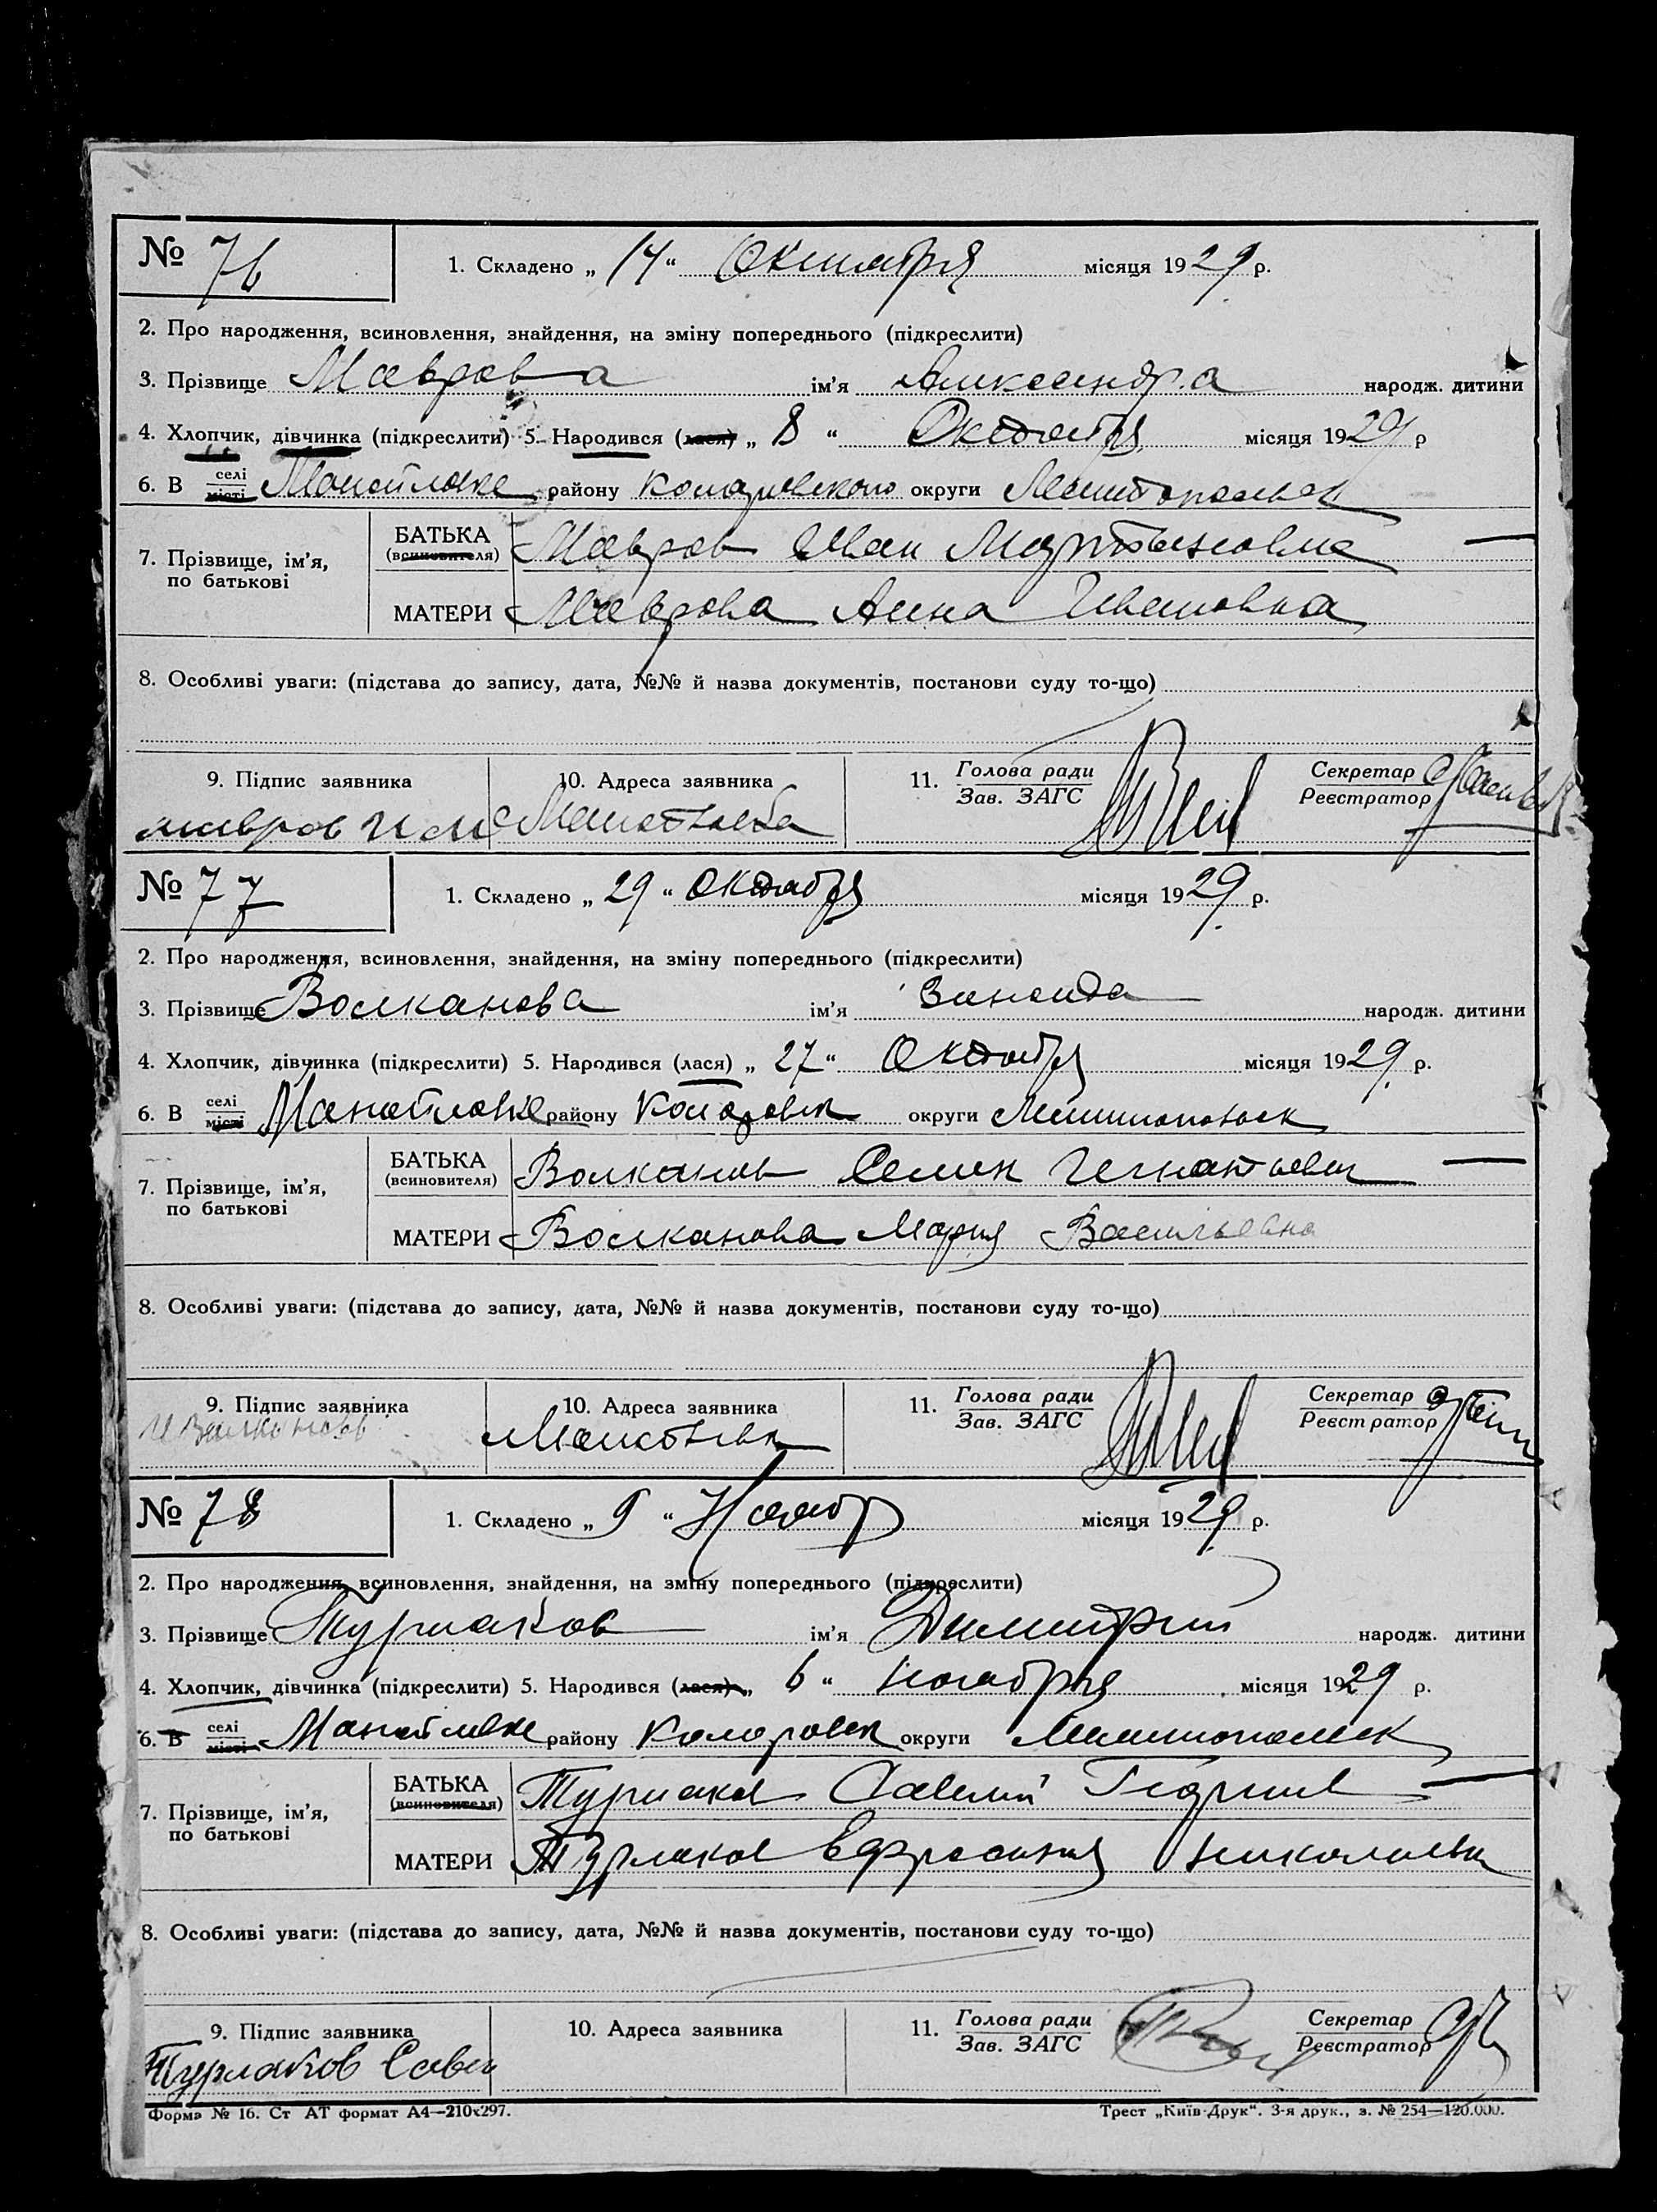 № 76 1. Складено „ 14 “ Октября місяця 1929 р.
2. Про народження, всиновлення, знайдення, на зміну попереднього (підкреслити)
3. Прізвище Маврова ім'я Александра народж. дитини
4. Хлопчик, дівчинка (підкреслити) 5. Народився (лася) „ 8 “ Октября місяця 1929 р
6. В селі місті Манойловке району Коларовского округи Мелитопольск
7. Прізвище, ім'я, по батькові
БАТЬКА (всиновителя) Мавров Иван Мартынович
МАТЕРИ Маврова Анна Ивановна
8. Особливі уваги: (підстава до запису, дата, №№ й назва документів, постанови суду то-що)
9. Підпис заявника 10. Адреса заявника 11. Голова ради Зав. ЗАГС Секретар Реєстратор
мавров И М
№ 77 1. Складено „ 29 “ Октября місяця 1929 р.
2. Про народження, всиновлення, знайдення, на зміну попереднього (підкреслити)
3. Прізвище Волканова ім'я Зиноида народж. дитини
4. Хлопчик, дівчинка (підкреслити) 5. Народився (лася) „ 27 “ Октября місяця 1929 р.
6. В селі місті Манойловке району Коларовск округи Мелитопольск
7. Прізвище, ім'я, по батькові
БАТЬКА (всиновителя) Волканов Семен Игнатьевич
МАТЕРИ Волканова Мария Васильевна
8. Особливі уваги: (підстава до запису, дата, №№ й назва документів, постанови суду то-що)
9. Підпис заявника 10. Адреса заявника 11. Голова ради Зав. ЗАГС Секретар Реєстратор
№ 78 1. Складено „ 9 “ Ноябр місяця 1929 р.
2. Про народження, всиновлення, знайдення, на зміну попереднього (підкреслити)
3. Прізвище Турлаков ім'я Димитрий народж. дитини
4. Хлопчик, дівчинка (підкреслити) 5. Народився (лася) „ 6 “ Ноября місяця 1929 р.
6. В селі місті Манойловке району Коларовск округи Мелитопольск
7. Прізвище, ім'я, по батькові
БАТЬКА (всиновителя) Турлаков Савелий Георгиев
МАТЕРИ Турлаков Ефросиния Николаевн
8. Особливі уваги: (підстава до запису, дата, №№ й назва документів, постанови суду то-що)
9. Підпис заявника 10. Адреса заявника 11. Голова ради Зав. ЗАГС Секретар Реєстратор
Турлаков Саве
Форма № 16. Ст АТ формат А4—210х297. Трест „Київ-Друк“. 3-я друк., з. № 254—120.000.